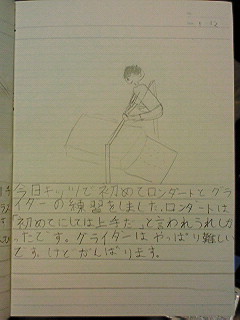 今日キッツで初めてロンダートとグラ
イダーの練習をしました。ロンダートは
「初めてにしては上手だ」と言われうれし
かったです。グライダーはやっぱり難しい
です。けどがんばります。